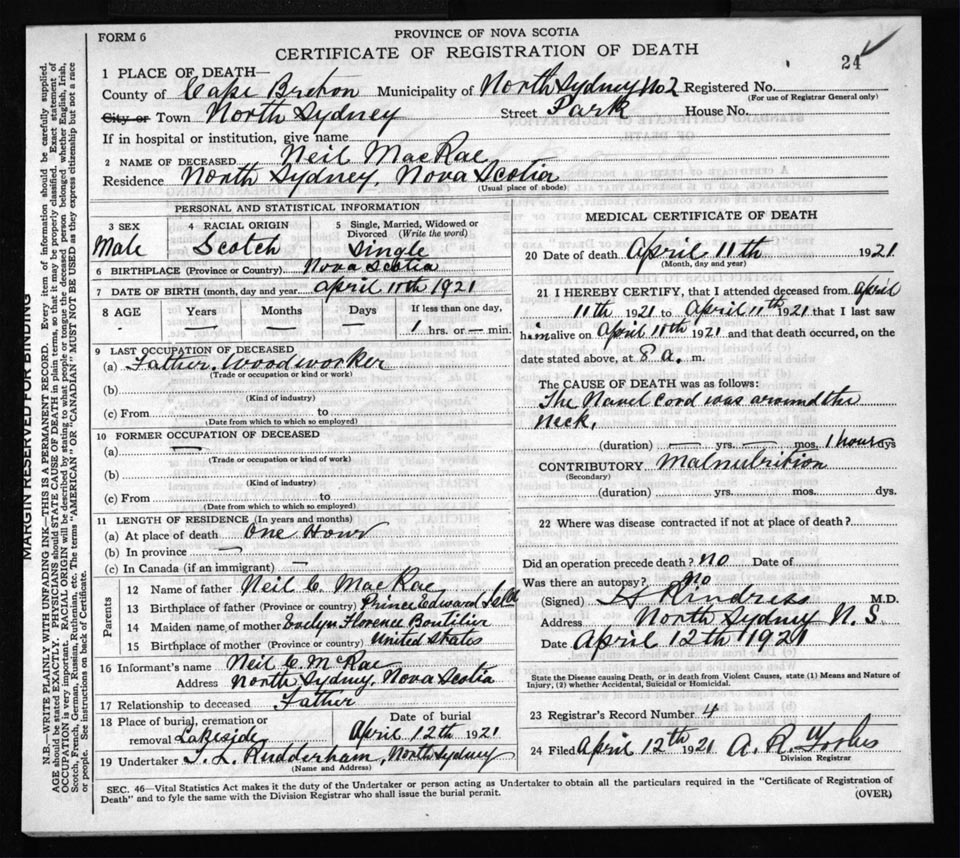 FORM 6
PROVINCE OF NOVA SCOTIA
CERTIFICATE OF REGISTRATION OF DEATH
24
1 PLACE OF DEATH—
County of Cape Breton Municipality of North Sydney No 2 Registered No.
(For use of Registrar General only)
City or Town North Sydney Street Park House No.
If in hospital or institution, give name
2 NAME OF DECEASED Neil MacRae
Residence North Sydney, Nova Scotia
(Usual place of abode)
PERSONAL AND STATISTICAL INFORMATION
3 SEX Male
4 RACIAL ORIGIN Scotch
5 Single, Married, Widowed or Divorced (Write the word) Single
6 BIRTHPLACE (Province or Country) Nova Scotia
7 DATE OF BIRTH (month, day and year April 11th 1921
8 AGE Years Months Days If less than one day,
- — — — 1 hrs. or — min.
9 LAST OCCUPATION OF DECEASED
(a) Father. Woodworker
(Trade or occupation or kind or work)
(b)
(Kind of industry)
(c) From to
(Date from which to which so employed)
10 FORMER OCCUPATION OF DECEASED
(a) —
(Trade or occupation or kind or work)
(b)
(Kind of industry)
(c) From to
(Date from which to which so employed)
11 LENGTH OF RESIDENCE (In years and months)
(a) At place of death One Hour
(b) In province —
(c) In Canada (if an immigrant) —
Parents
12 Name of father Neil C. MacRae
13 Birthplace of father (Province or country) Prince Edward Isld
14 Maiden name of mother Evelyn Florence Boutilier
15 Birthplace of mother (Province or country) United States
16 Informant's name Neil C. McRae
Address North Sydney, Nova Scotia
17 Relationship to deceased Father
18 Place of burial, cremation or removal Lakeside
Date of burial April 12th 1921
19 Undertaker T. L. Rudderham, North Sydney
(Name and Address)
MEDICAL CERTIFICATE OF DEATH
20 Date of death April 11th 1921
(Month, day and year)
21 I HEREBY CERTIFY, that I attended deceased from April
11th 1921 to April 11th 1921 that I last saw
him alive on April 11th 1921 and that death occurred, on the
date stated above, at 8 a. m.
The CAUSE OF DEATH was as follows:
The Navel Cord was around the
neck.
(duration) — yrs. — mos. 1 hour dys
CONTRIBUTORY Malnutrition
(Secondary)
(duration) yrs. mos. dys.
22 Where was disease contracted if not at place of death?
Did an operation precede death? no Date of
Was there an autopsy? No
(Signed) M.D.
Address North Sydney N. S.
Date April 12th 1921
State the Disease causing Death, or in death from Violent Causes, state (1) Means and Nature of
Injury, (2) whether Accidental, Suicidal or Homicidal.
23 Registrar's Record Number 4
24 Filed April 12th 1921 A. R. Forbes
Division Registrar
SEC. 46—Vital Statistics Act makes it the duty of the Undertaker or person acting as Undertaker to obtain all the particulars required in the "Certificate of Registration of
Death" and to fyle the same with the Division Registrar who shall issue the burial permit.
(OVER)
MARGIN RESERVED FOR BINDING
N.B.—WRITE PLAINLY WITH UNFADING INK—THIS IS A PERMANENT RECORD. Every item of information should be carefully supplied.
AGE should be stated EXACTLY. PHYSICIANS should STATE CAUSE OF DEATH in plain terms, so that it may be properly classified. Exact statement of
OCCUPATION is very important. RACIAL ORIGIN will be described by stating to what people or tongue the deceased person belonged whether English, Irish,
Scotch, French, German, Russian, Ruthenian, etc. The terms "AMERICAN" OR "CANADIAN" MUST NOT BE USED as they express citizenship but not a race
or people. See instructions on back of Certificate.